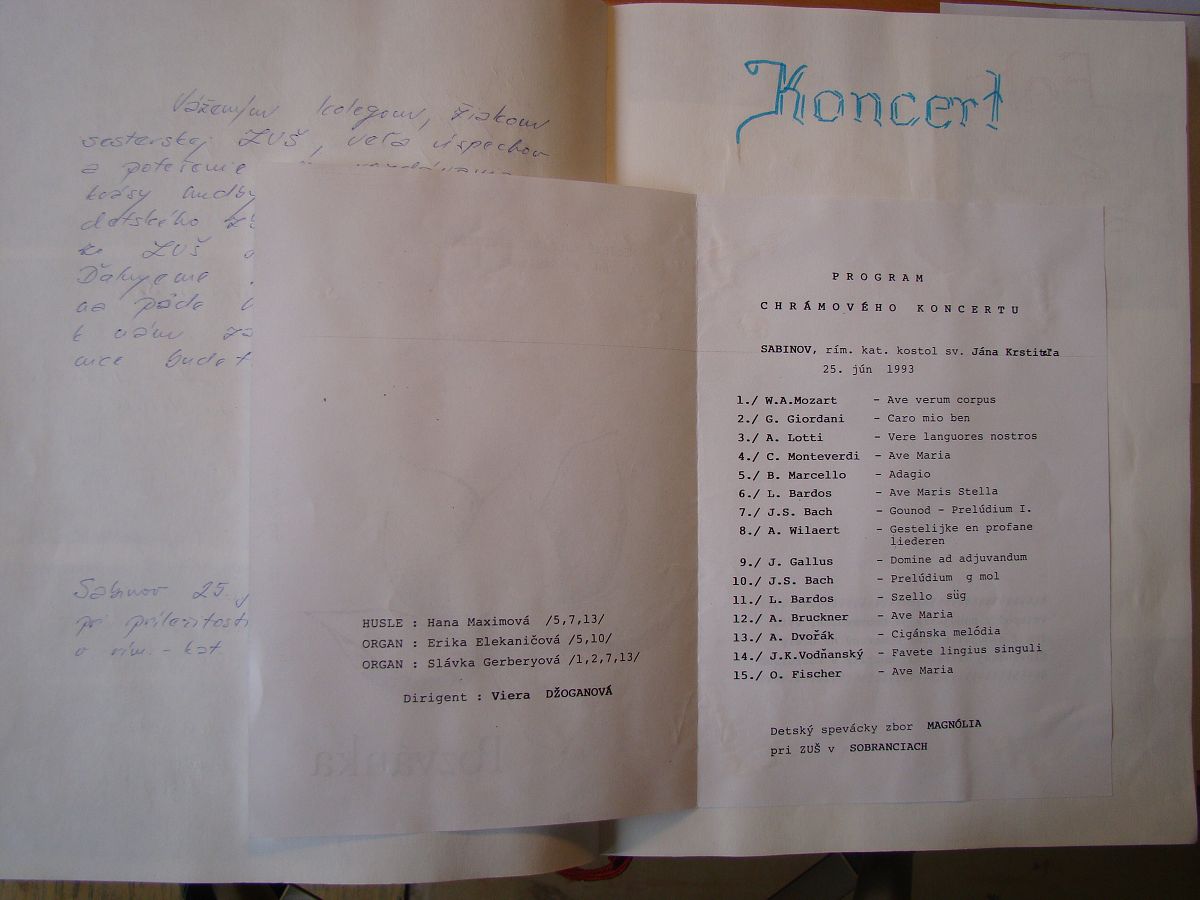 Váženým kolegom, žiakom
sesterskej ZUŠ, veľa úspechov
a potešenie
krásy hudby
detského
zo ZUŠ
Ďakujeme
na pôde
k vám
Sabinov 25.
pri príležitosti
v rím. - kat.
Koncert
PROGRAM
CHRÁMOVÉHO KONCERTU
SABINOV, rím. kat. kostol sv. Jána Krstiteľa
25. jún 1993
1./ W.A.Mozart - Ave verum corpus
2./ G. Giordani - Caro mio ben
3./ A. Lotti - Vere languores nostros
4./ C. Monteverdi - Ave Maria
5./ B. Marcello - Adagio
6./ L. Bardos - Ave Maris Stella
7./ J.S. Bach - Gounod - Prelúdium I.
8./ A. Wilaert - Gestelijke en profane
liederen
9./ J. Gallus - Domine ad adjuvandum
10./ J.S. Bach - Prelúdium g mol
11./ L. Bardos - Szello süg
12./ A. Bruckner - Ave Maria
13./ A. Dvořák - Cigánska melódia
14./ J.K.Vodňanský - Favete lingius singuli
15./ O. Fischer - Ave Maria
Detský spevácky zbor MAGNÓLIA
pri ZUŠ v SOBRANCIACH
HUSLE : Hana Maximová /5,7,13/
ORGAN : Erika Elekaničová /5,10/
ORGAN : Slávka Gerberyová /1,2,7,13/
Dirigent : Viera DŽOGANOVÁ
Pozvánka